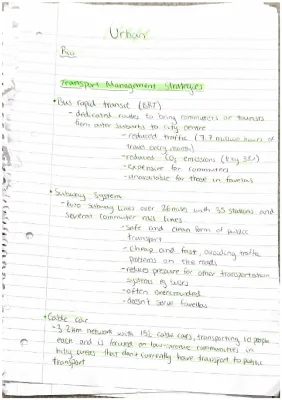 Urban
Rio
Transport Management Strategies
• Bus rapid transit (BRT)
- dedicated routes to bring commuters or tourists
from outer suburbs to city centre
- reduced traffic (7.7 million hours of
travel every month)
- reduced CO2 emissions (by 38%)
- expensive for commuters
- unavailable for those in favelas
• Subway system
- two subway lines over 26 miles with 35 stations and
several commuter rail lines
- safe and clean form of public
transport
- cheap and fast, avoiding traffic
problems on the roads
- reduces pressure for other transportation
systems eg buses
- often overcrowded
- doesn't serve favellas
• Cable car
- 3.2km network with 152 cable cars, transporting 10 people
each and is focused on low-income communities in
hilly areas that don't currently have transport to public
transport